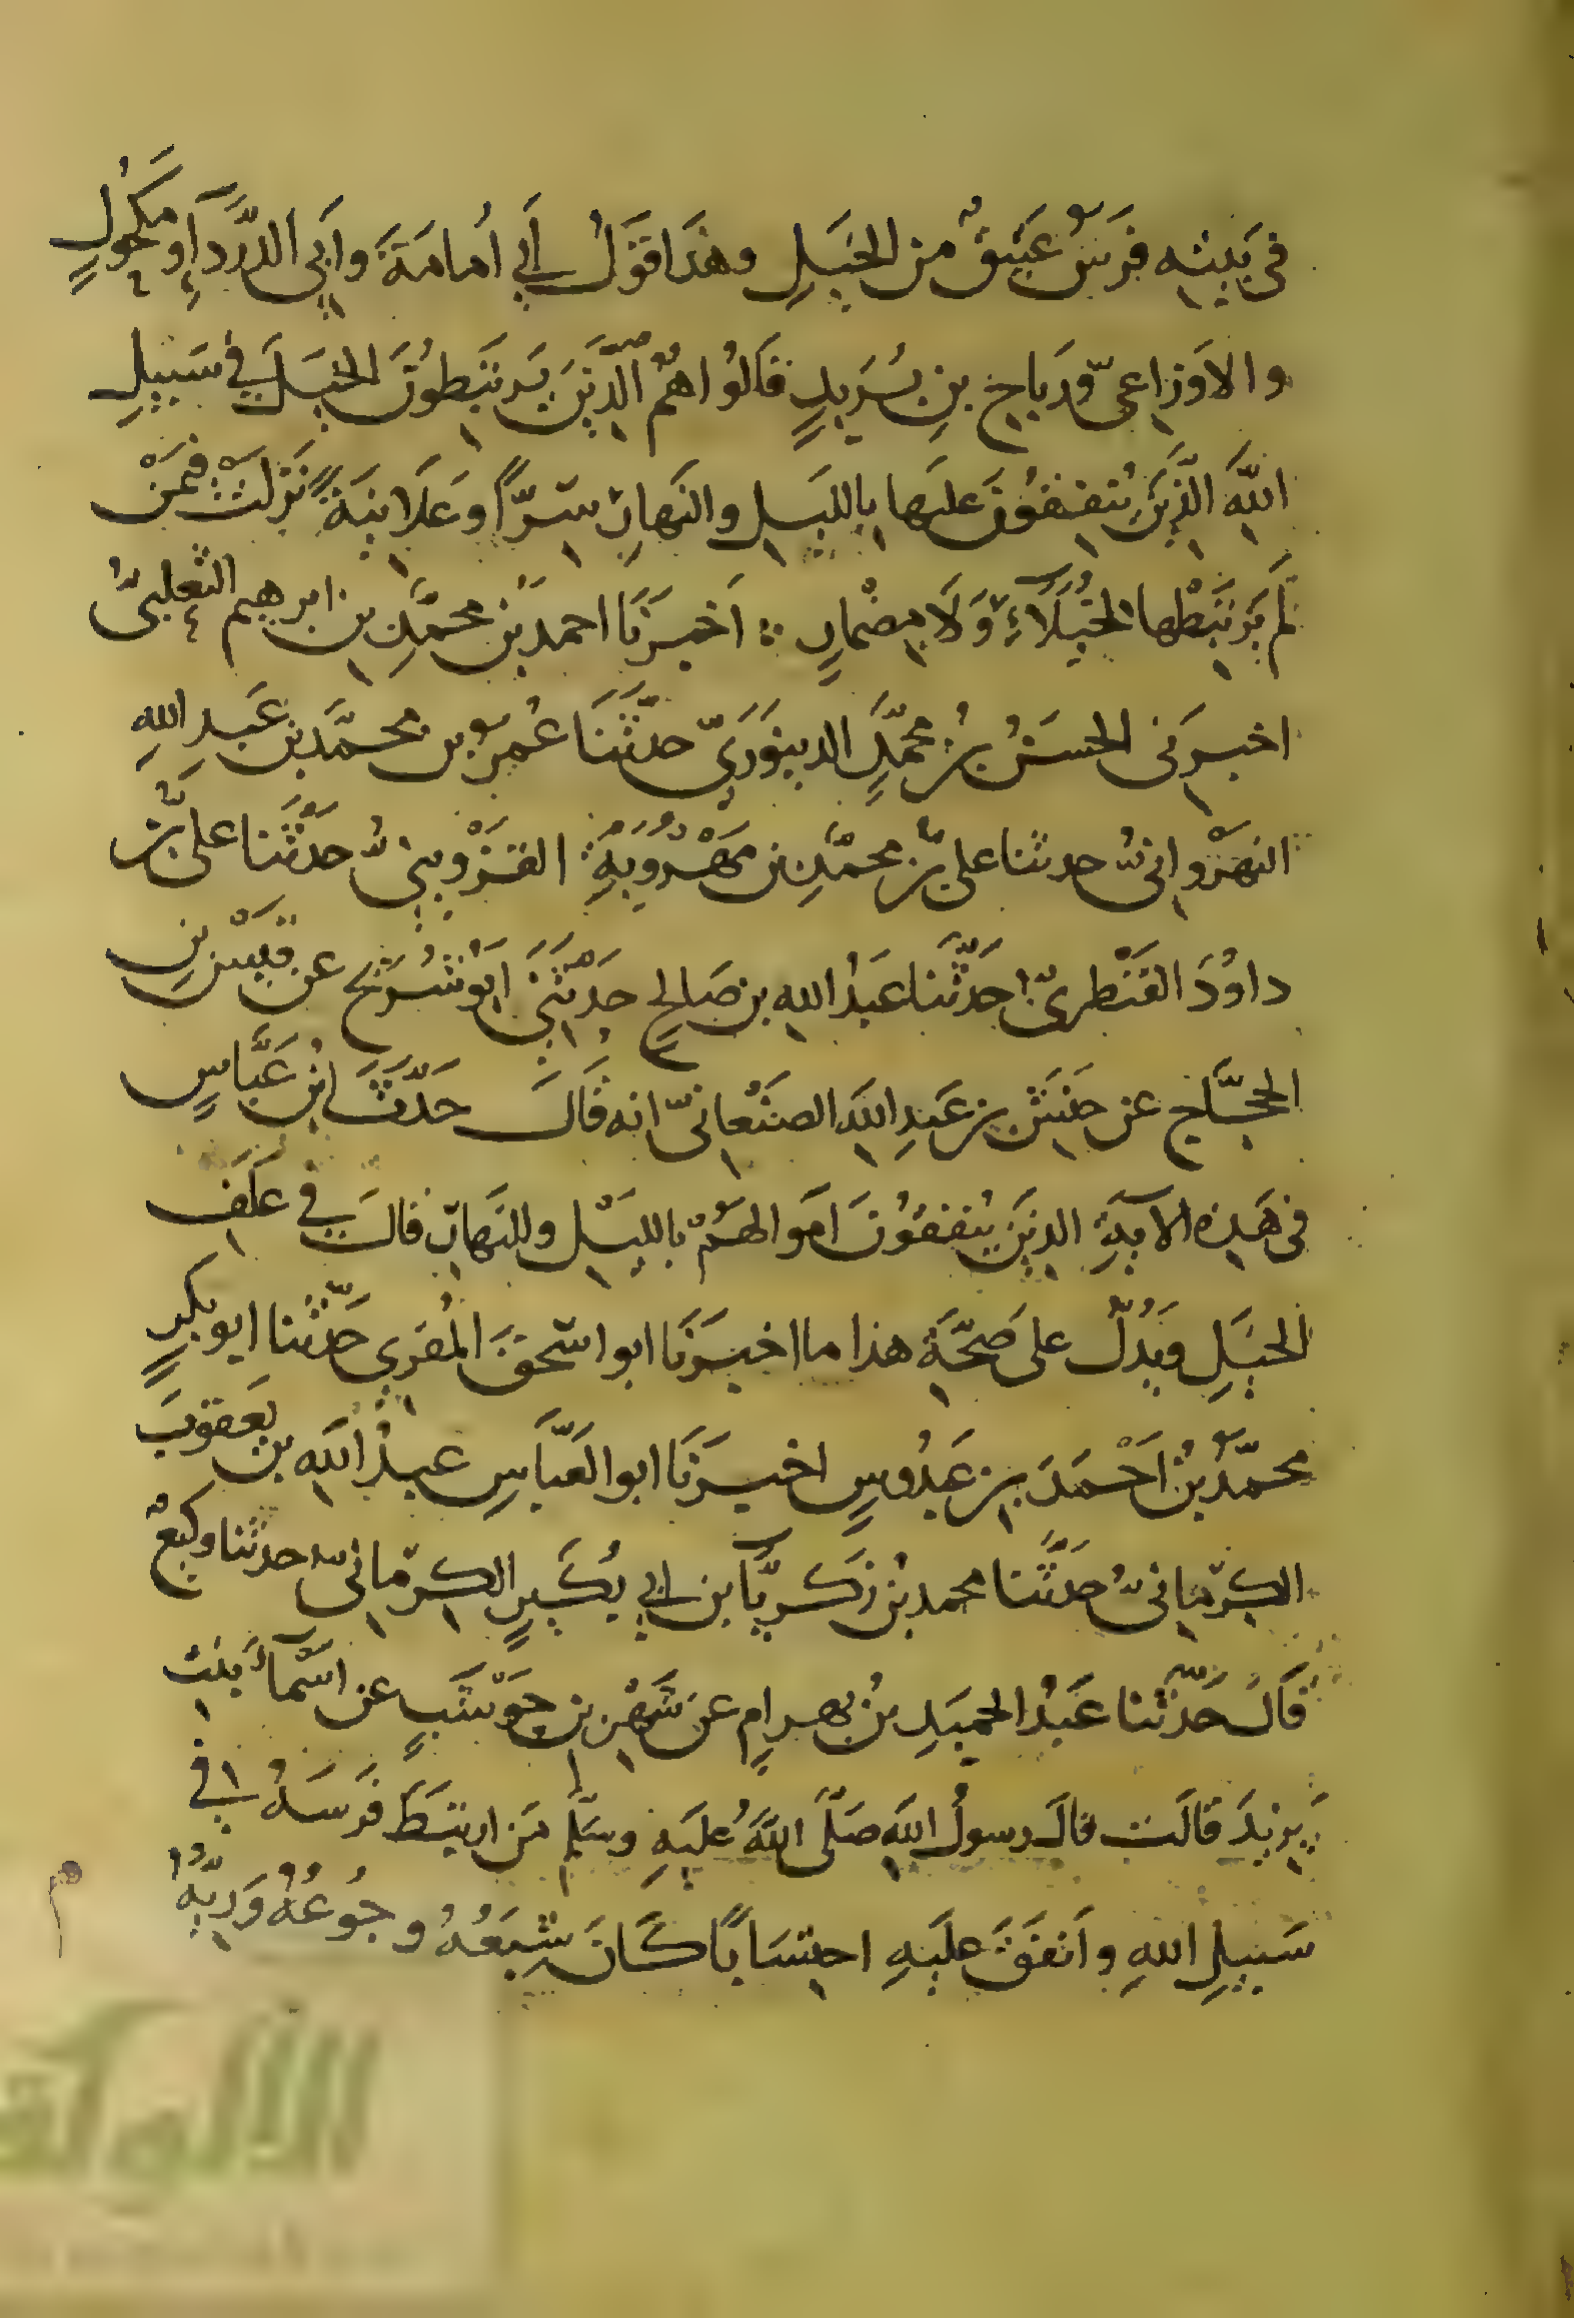 في بَيتِه فرَسٌ عَتيقٌ من الخَيلِ وهذَا قَوَلُ أَبي أُمامَةَ وأَبِي الدَّردَآءِ ومَكحُولٍ
والاوَزاعىّ ورَباحِ بنِ يَزيدٍ قَالُوا هُمُ الَّذِينَ يَرتَبِطُونَ الخَيَلَ في سَبيلِ
اللهِ الَّذِينَ يُنفِقُونَ عليَها بالليَلِ والنَهارِ سِرًّا وعَلَانِيَةً نَزلَتْ فيمَنْ
لَم يَرتَبِطْها لخُيَلَآءَ وَلَا مِضْمارٍ أَخبَرَنَا احمدُ بن محمَّدِ بن ابرهيم الثعلبىُّ
اخبرَنى الحسَنُ بنُ محمَّدٍ الدينوَرَىّ حدَّثَنَا عُمَرُ بن محمَّد بن عَبدِ اللهِ
النهرَوانىُّ حدثنا علىُّ بن محمَّدِ بن مَهْرُويَةِ القزْوِينىُّ حدَّثَنا علىُّ بن
داوُدَ القَنْطرىّ حَدَّثنا عَبدُ اللهِ بن صَالحٍ حَدَّثَنِى أبو شُرَيحٍ عن قَيسْ بنِ
الحَجَّاج عن حَنَشِ بن عَبدِ اللهِ الصَنْعانىّ انه قَالَ حَدَّثَ ابنُ عَبَّاسٍ
فى هَذِه الآيَةِ الذِينَ يُنفِقُونَ أمَوالهَمُ بالليَلِ والنَهارِ قالَ في عَلَفِ
الخيَلِ ويَدُلّ على صِحَّةَ هذا ما اخبَرَنَا ابو اسْحقَ المُقرِى حَدَّثَنا ابو بكرٍ
محمَّدُ بْنُ أَحْمَدَ بن عَبدُوسٍ اخبَرنَا ابو العَبَّاسِ عبدُ اللهِ بن يَعقوبَ
الكِرمانىُّ حَدَّثَنا محمد بْن زَكَريَّآ بن ابي بُكَيرٍ الكِرمانىُّ حدثنا وكيعٌ
قَالَ حَدَّثنا عَبدُ الحميَدِ بنُ بهرامٍ عن شَهْرِ بنِ حَوشَبٍ عن اسْمآءَ بنِت
يَزِيدَ قالَت قالَ رسولُ اللهِ صَلَّى اللهُ عليَهِ وسَلَّمِ مَن ارتبَطَ فَرَسَهُ في
سَبيلِ اللهِ وأَنفَقَ عليَهِ احتِسَابًا كَانَ شِبَعُهُ وجُوعُهُ وَرِيُّهُ